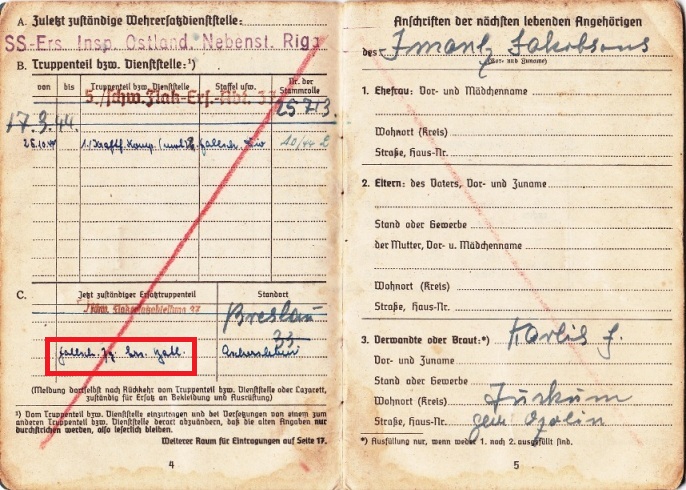 A. Zuletzt zuständige Wehrersatzdienststelle:
SS-Ers. Insp. Ostland, Nebenst. Riga
B. Truppenteil bzw. Dienststelle:¹)
von bis Truppenteil bzw. Dienststelle Staffel usw. Nr. der Stammrolle
5./schw. Flak-Ers.-Abt.
25713.
17.3.44.
C. Jetzt zuständiger Ersatztruppenteil Standort
Breslau
33
Fallsch. Jg. Ers. Aschersleben
(Meldung dortselbst nach Rückkehr vom Truppenteil bzw. Dienststelle oder Lazarett,
zuständig für Ersatz an Bekleidung und Ausrüstung)
¹) Vom Truppenteil bzw. Dienststelle einzutragen und bei Versetzungen von einem zum
anderen Truppenteil bzw. Dienststelle derart abzuändern, daß die alten Angaben nur
durchstrichen werden, also leserlich bleiben.
Weiterer Raum für Eintragungen auf Seite 17.
4
Anschriften der nächsten lebenden Angehörigen
des: Imants Jakobsons
(Vor- und Zuname)
1. Ehefrau: Vor- und Mädchenname
Wohnort (Kreis)
Straße, Haus-Nr.
2. Eltern: des Vaters, Vor- und Zuname
Stand oder Gewerbe
der Mutter, Vor- u. Mädchenname
Wohnort (Kreis)
Straße, Haus-Nr.
3. Verwandte oder Braut:*) Karlis J.
Vor- und Zuname
Stand oder Gewerbe
Wohnort (Kreis) Tuckum
Straße, Haus-Nr.
*) Ausfüllung nur, wenn weder 1. noch 2. ausgefüllt sind.
5